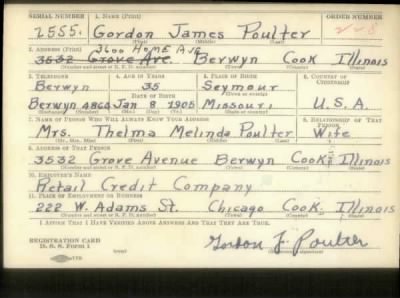 SERIAL NUMBER 1. NAME (Print) ORDER NUMBER
2555. Gordon James Poulter
(First) (Middle) (Last)
2. ADDRESS (Print) 3600 HOME AVE
3532 Grove Ave. Berwyn Cook Illinois
(Number and street or R. F. D. number) (Town) (County) (State)
3. TELEPHONE 4. AGE IN YEARS 5. PLACE OF BIRTH 6. COUNTRY OF CITIZENSHIP
Berwyn 35 Seymour
DATE OF BIRTH (Town or county)
Berwyn Jan 8 1905 Missouri U.S.A.
(Exchange) (Mo.) (Day) (Yr.) (State or country)
7. NAME OF PERSON WHO WILL ALWAYS KNOW YOUR ADDRESS 8. RELATIONSHIP OF THAT PERSON
Mrs. Thelma Melinda Poulter Wife
(Mr., Mrs., Miss) (First) (Middle) (Last)
9. ADDRESS OF THAT PERSON
3532 Grove Avenue Berwyn Cook Illinois
(Number and street or R. F. D. number) (Town) (County) (State)
10. EMPLOYER'S NAME
Retail Credit Company
11. PLACE OF EMPLOYMENT OR BUSINESS
222 W. Adams St. Chicago Cook, Illinois
(Number and street or R. F. D. number) (Town) (County) (State)
I AFFIRM THAT I HAVE VERIFIED ABOVE ANSWERS AND THAT THEY ARE TRUE.
REGISTRATION CARD
D. S. S. Form 1 (over) Gordon J. Poulter
(Registrant's signature)